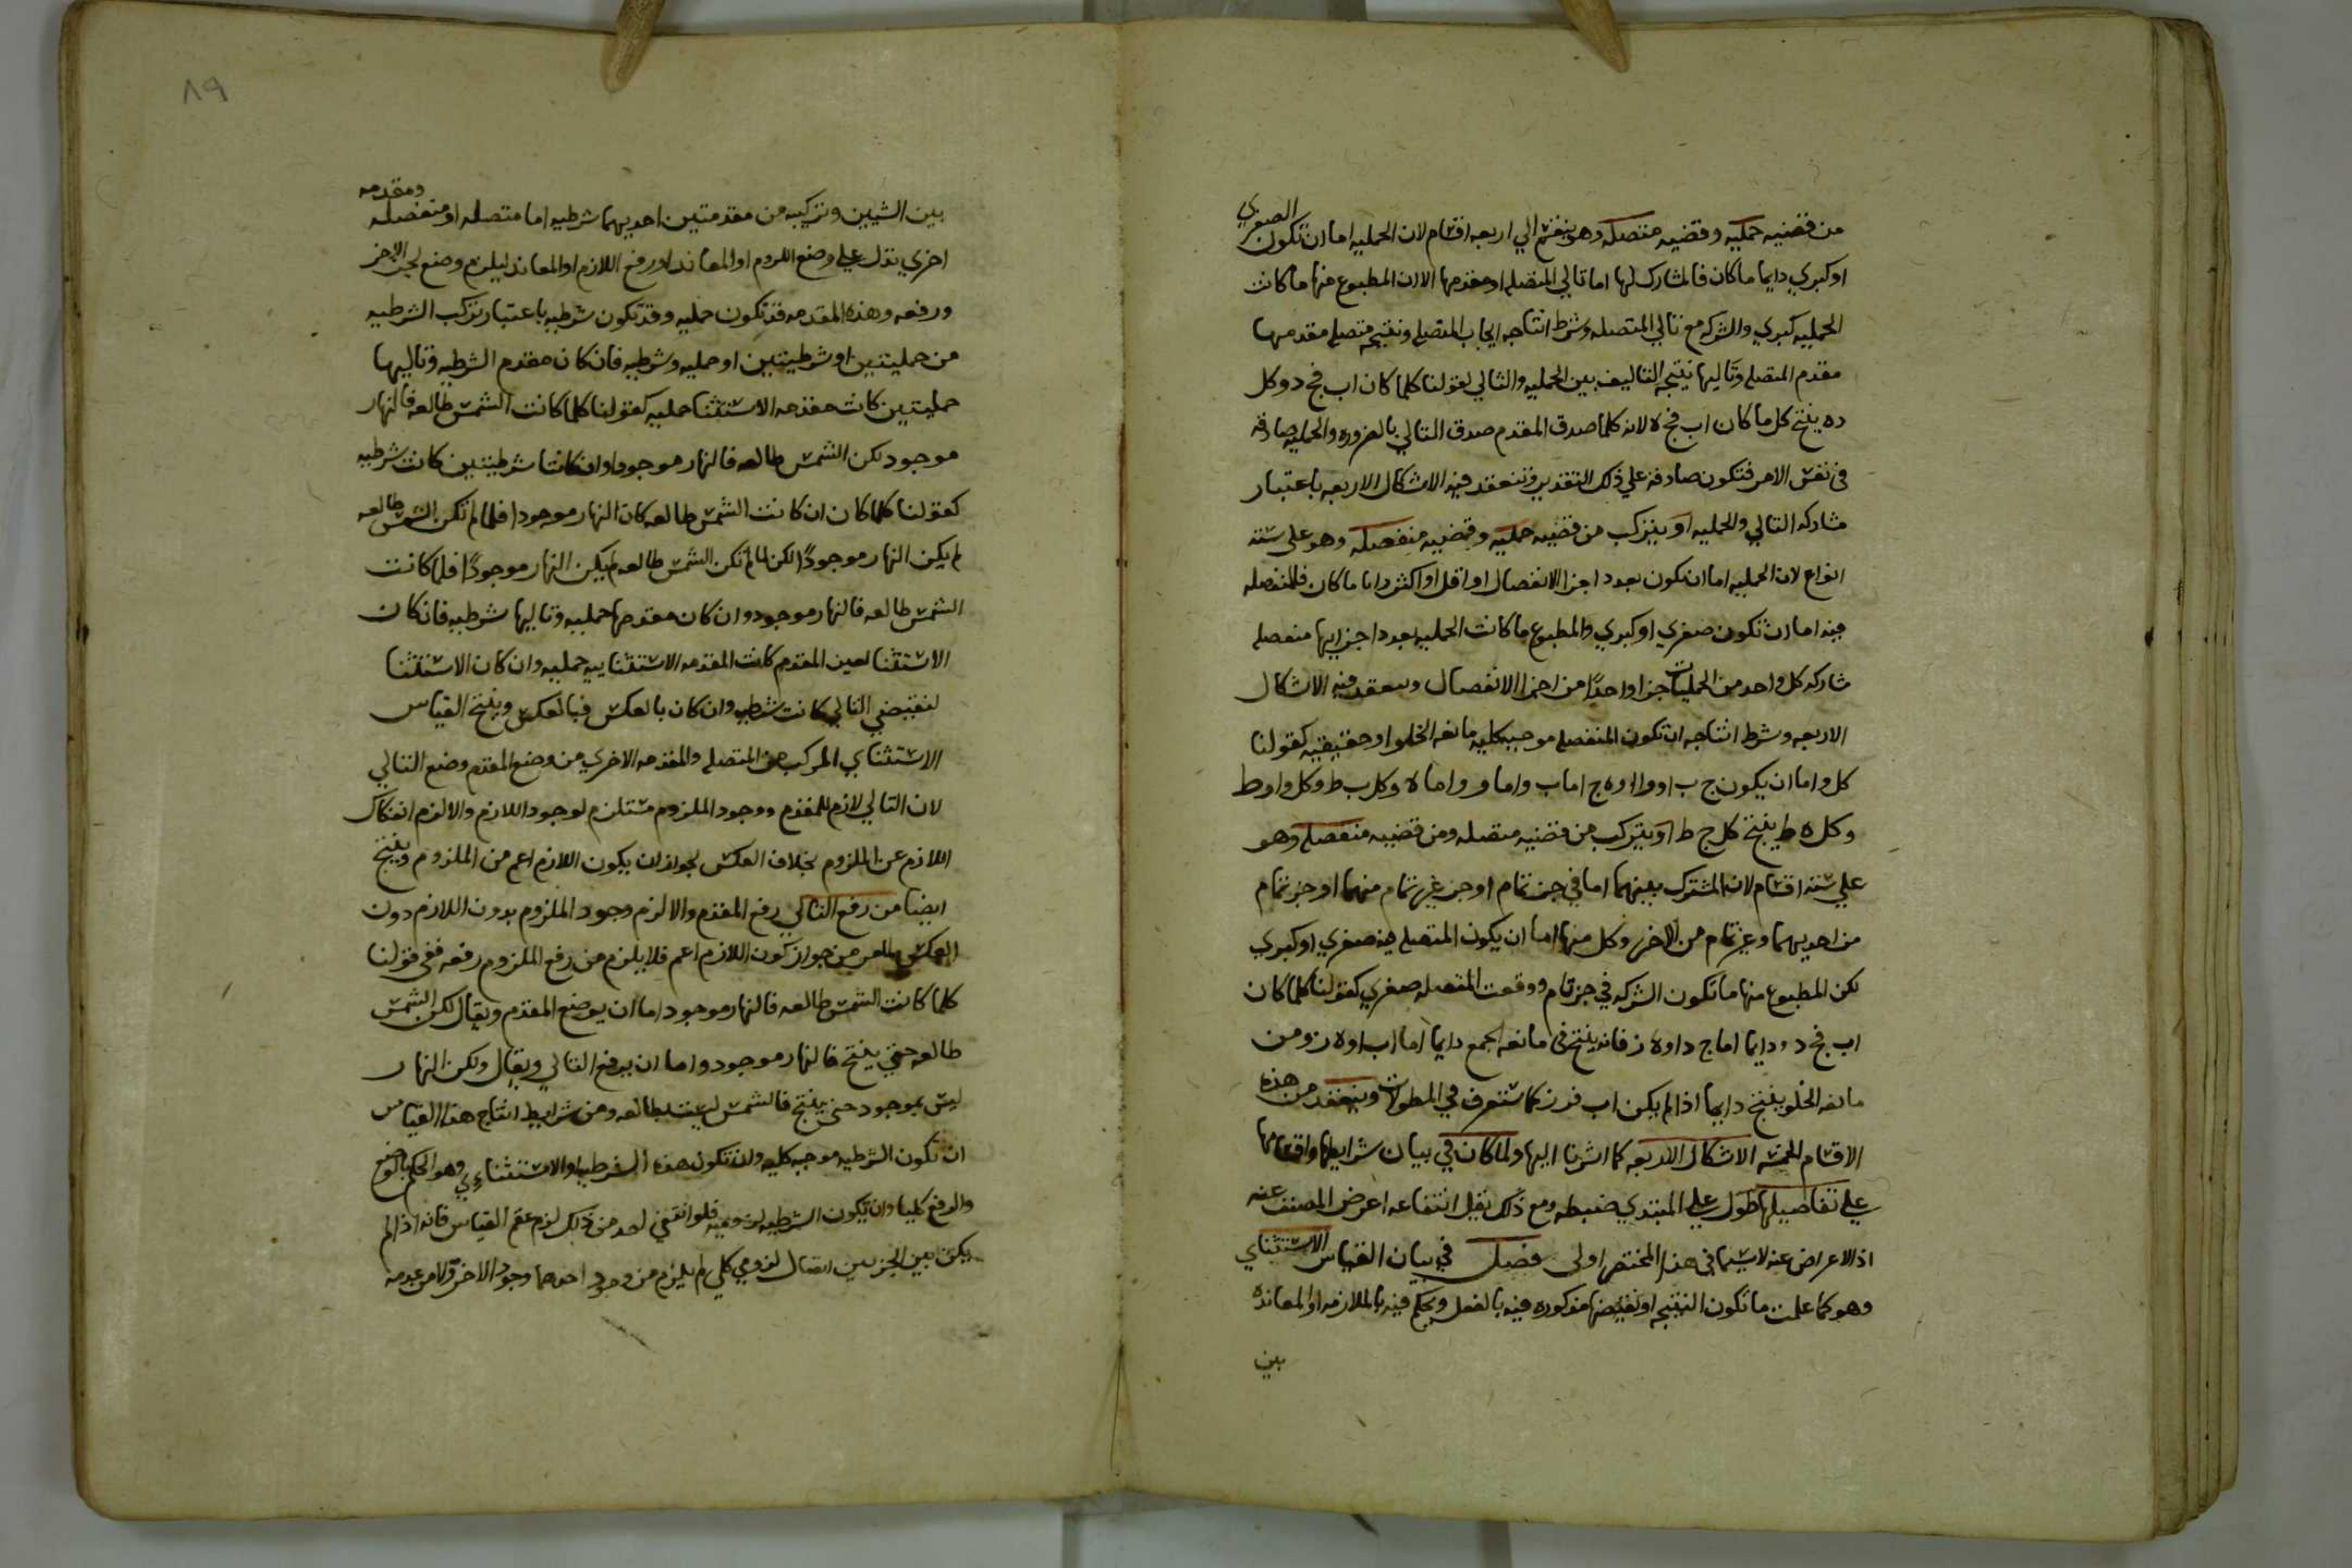 من قضيه حمليه وقضيه متصله وهو ينقسم الي اربعه اقسام لان الحمليه اما ان تكون الصغري
او كبري دايما ما كان فالمشارك لها اما تالي المتصله او مقدمها الا ان المطبوع منها ما كانت
الحمليه كبري والشركه مع تالي المتصله وشرط انتاجه ايجاب المتصله ونتيجته متصله مقدمها
مقدم المتصله وتاليها نتيجه التاليف بين الحمليه والتالي لقولنا كلما كان اب فج د وكل
د ه ينتج كل ما كان اب فج ه لانه كلما صدق المقدم صدق التالي بالضروره والحمليه صادقه
في نفس الامر فتكون صادقه علي ذلك التقدير وتنعقد فيه الاشكال الاربعه باعتبار
مشاركه التالي والحمليه او يتركب من قضيه حمليه وقضيه منفصله وهو علي سته
انواع لان الحمليه اما ان تكون بعدد اجزا الانفصال او اقل او اكثر دايا ما كان فالمنفصله
فيه اما ان تكون صغري او كبري والمطبوع ما كانت الحمليه بعدد اجزايها منفصله
شاركه كل واحد من الحمليات جزا واحدًا من اجزا الانفصال وينعقد فيه الاشكال
الاربعه وشرط انتاجه ان تكون المنفصله موجبه كليه مانعه الخلو او حقيقيه كقولنا
كل و اما ان يكون ج ب او و او ه ج اما ب واما و واما ه وكل ب ط وكل و او ط
وكل ه ط ينتج كل ج ط او يتركب من قضيه متصله ومن قضيه منفصله وهو
علي سته اقسام لان المشترك بينهما اما في جز تمام او جز غير تمام منهما او جز تمام
من احديهما وغير تمام من الاخر وكل منها اما ان يكون المتصله فيه صغري او كبري
لكن المطبوع منها ما تكون الشركه في جز تام ووقعت المتصله صغري كقولنا كلما كان
اب فج د ودايما اما ج د او ه ز فانه ينتج في مانعه الجمع دايما اما اب او ه ز ومن
مانعه الخلو ينتج دايما اذا لم يكن اب فه ز كما ستعرف في المطولات وينعقد من هذه
الاقسام الخمسه الاشكال الاربعه كما اشرنا اليها ولما كان في بيان شرايطها واقسامها
علي تفاصيلها طول علي المبتدي ضبطه ومع ذلك يقل انتفاعه اعرض المصنف عنه
اذ الاعراض عنه لاسيما في هذا المختصر اولي فصل في بيان القياس الاستثناي
وهو كما علمت ما تكون النتيجه او نقيضها مذكوره فيه بالفعل ويحكم فيه بالملازمه او المعانده
بين
٨٩
بين الشيين وتركيبه من مقدمتين احديهما شرطيه اما متصله او منفصله ومقدمه
اخري تدل علي وضع اللزوم او المعاند او رفع اللازم او المعاند ليلزم وضع لجز الاخر
ورفعه وهذه المقدمه قد تكون حمليه وقد تكون شرطيه باعتبار تركب الشرطيه
من حمليتين او شرطيتين او حمليه وشرطيه فان كان مقدم الشرطيه وتاليها
حمليتين كانت مقدمه الاستثنا حمليه كقولنا كلما كانت الشمس طالعه فالنهار
موجود لكن الشمس طالعه فالنهار موجود وان كانتا شرطيتين كانت شرطيه
كقولنا كلما كان ان كانت الشمس طالعه كان النهار موجودا فلما لم تكن الشمس طالعه
لم يكن النهار موجودًا لكن لما لم تكن الشمس طالعه لم يكن النهار موجودًا فلما كانت
الشمس طالعه فالنهار موجود وان كان مقدمها حمليه وتاليها شرطيه فان كان
الاستثنا لعين المقدم كانت المقدمه الاستثناييه حمليه وان كان الاستثنا
لنقيض التالي كانت شرطيه وان كان بالعكس فبالعكس وينتج القياس
الاستثناي المركب من المتصله والمقدمه الاخري من وضع المقدم وضع التالي
لان التالي لازم للمقدم ووجود الملزوم مستلزم لوجود اللازم والا لزم انفكاك
اللازم عن الملزوم بخلاف العكس لجواز ان يكون اللازم اعم من الملزوم وينتج
ايضا من رفع التالي رفع المقدم والا لزم وجود الملزوم بدون اللازم دون
العكس لما مر من جواز كون اللازم اعم فلا يلزم من رفع الملزوم رفعه ففي قولنا
كلما كانت الشمس طالعه فالنهار موجود اما ان يوضع المقدم ويقال لكن الشمس
طالعه حتي ينتج فالنهار موجود واما ان يرفع التالي ويقال ولكن النهار
ليس بموجود حتي ينتج فالشمس ليست بطالعه ومن شرايط انتاج هذا القياس
ان تكون الشرطيه موجبه كليه وان تكون هذه الشرطيه او الاستثناءي وهو الحكم بالوضع
والرفع كليا وان تكون الشرطيه لزوميه فلو انتفي احد من ذلك لزم عقم القياس فانه اذا لم
يكن بين الجزيين اتصال لزومي كلي لم يلزم من وجود احدهما وجود الاخر ولا من عدمه